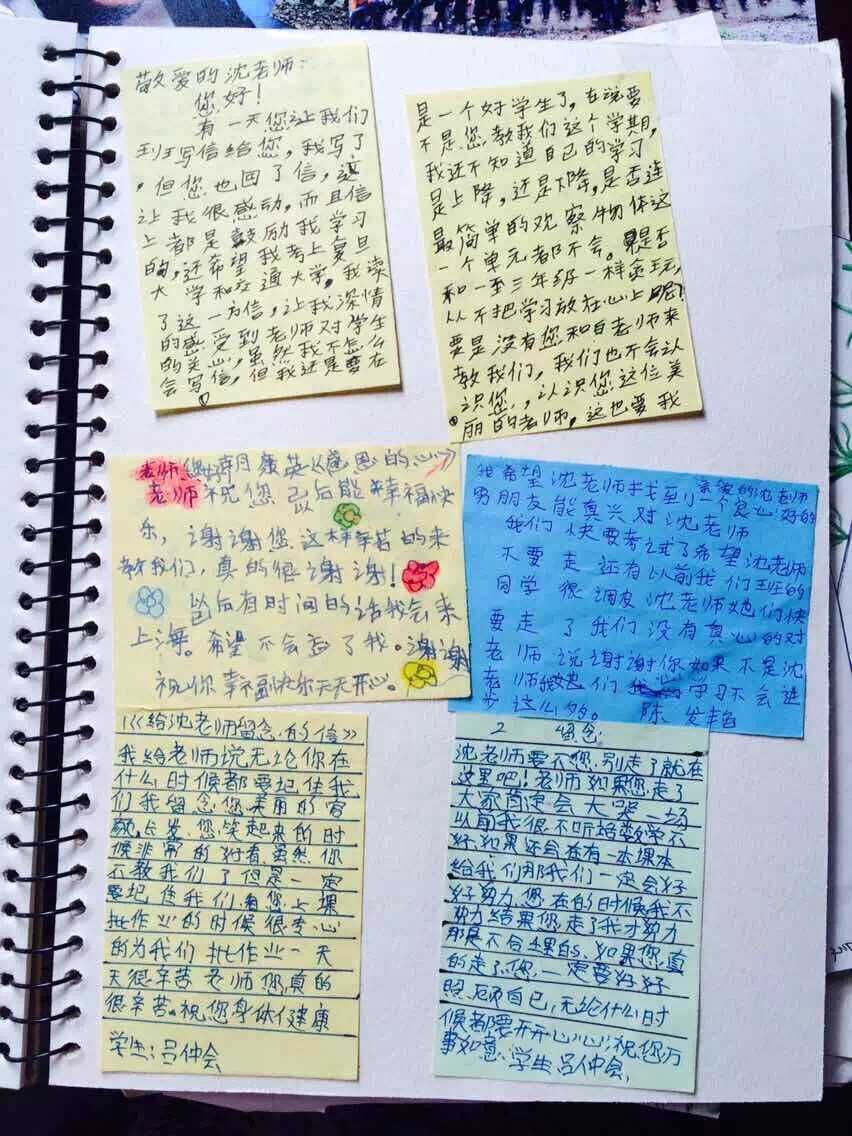 敬爱的沈老师：
您好！
有一天您让我们
写信给您，我写了
，但您也回了信，这
让我很感动，而且信
上都是鼓励我学习
的，还希望我考上复旦
大学和交通大学，我读
了这一方信，让我深情
的感受到老师对学生
的关心，虽然我不怎么
会写信，但我还是要在
是一个好学生了，在说要
不是您教我们这个学期，
我还不知道自己的学习
是上降，还是下降，是否连
最简单的观察物体这
一个单元都不会。是否
和一至三年级一样贪玩，
从不把学习放在心上呢？
要是没有您和白老师来
教我们，我们也不会认
识您，，认识您这位美
丽的老师，这也要我
老师您好
《感恩的心》
老师祝您以后能幸福快
乐，谢谢您这样辛苦的来
教我们，真的很谢谢！
以后有时间的话我会来
上海。希望不会忘了我。谢谢
祝你幸福快乐天天开心。
亲爱的沈老师
我希望沈老师找到一个良心好的
男朋友能真兴对沈老师
我们快要考试了希望沈老师
不要走还有以前我们班的
同学很调皮沈老师她们快
要走了我们没有真心的对
老师说谢谢你如果不是沈
老师教她们学习不会进
步这么多。 陈
1《给沈老师留念的信》
我给老师说无论你在
什么时候都要记住我
们我留念您美丽的容
颜长发，您笑起来的时
候非常的好看虽然你
不教我们了但是一定
要记住我们，看您上课
批作业的时候很专心
的为我们批作业一天
天很辛苦老师您真的
很辛苦。祝您身体健康
学生：吕仲会
2 留念：
沈老师要不您别走了就在
这里吧！老师如果您走了
大家肯定会大哭一场
以前我很不听话数学不
好，如果还会在有一本课本
给我们那我们一定会好
好努力，您在的时候我不
努力结果您走了我才努力
那是不合理的，如果您真
的走了，您一定要好好
照顾自己，无论什么时
候都要开开心心；祝您万
事如意，学生吕仲会，